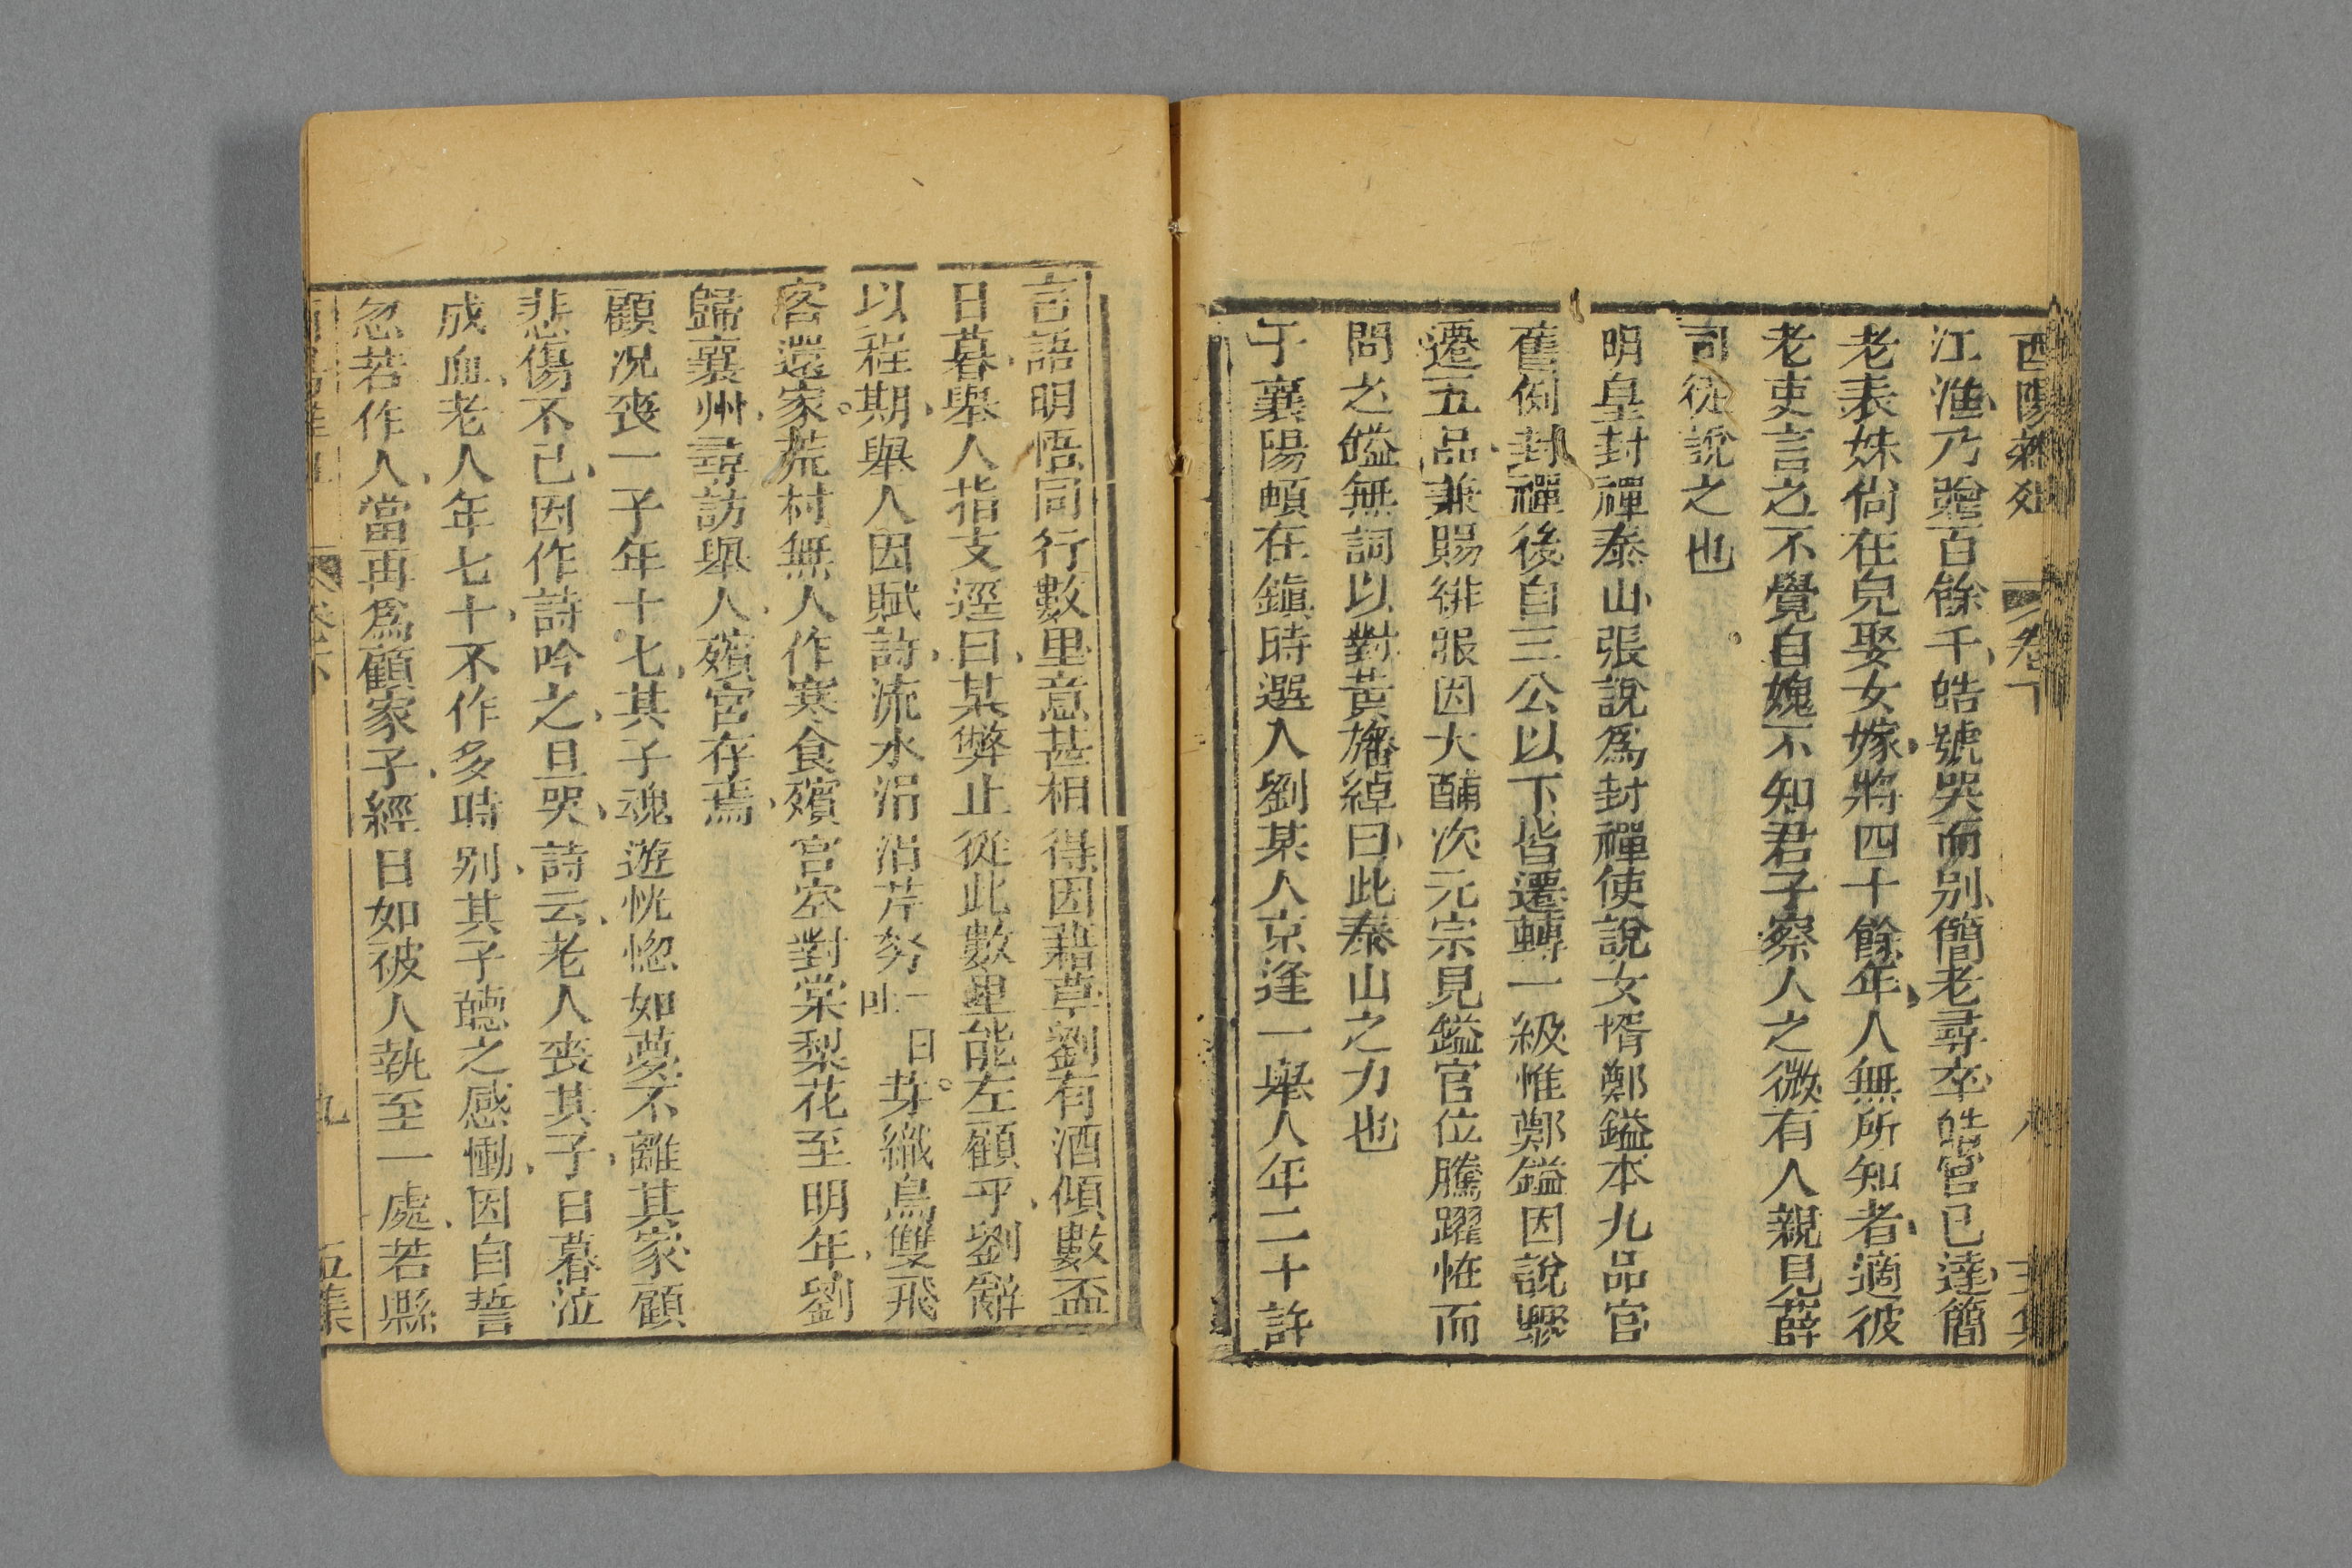 酉陽雜俎 卷下 八 五集
江淮乃贈百餘千皓號哭而別簡老尋卒皓官已達簡
老表妹尙在兒娶女嫁將四十餘年人無所知者適彼
老吏言之不覺自媿不知君子察人之微有人親見薛
司徒說之也
明皇封禪泰山張說爲封禪使說女壻鄭鎰本九品官
舊例封禪後自三公以下皆遷轉一級惟鄭鎰因說驟
遷五品兼賜緋服因大酺次元宗見鎰官位騰躍恠而
問之鎰無詞以對黃旛綽曰此泰山之力也
于襄陽頔在鎭時選人劉某人京逢一舉人年二十許
言語明悟同行數里意甚相得因藉草劉有酒傾數盃
日暮舉人指支逕曰某弊止從此數里能左顧乎劉辭
以程期舉人因賦詩流水涓涓芹努一曰吐芽織烏雙飛
客還家荒村無人作寒食殯宮空對棠梨花至明年劉
歸襄州尋訪舉人殯宮存焉
顧况喪一子年十七其子魂遊恍惚如夢不離其家顧
悲傷不已因作詩吟之且哭詩云老人喪其子日暮泣
成血老人年七十不作多時別其子聽之感慟因自誓
忽若作人當再爲顧家子經日如彼人執至一處若縣
卷下 九 五集